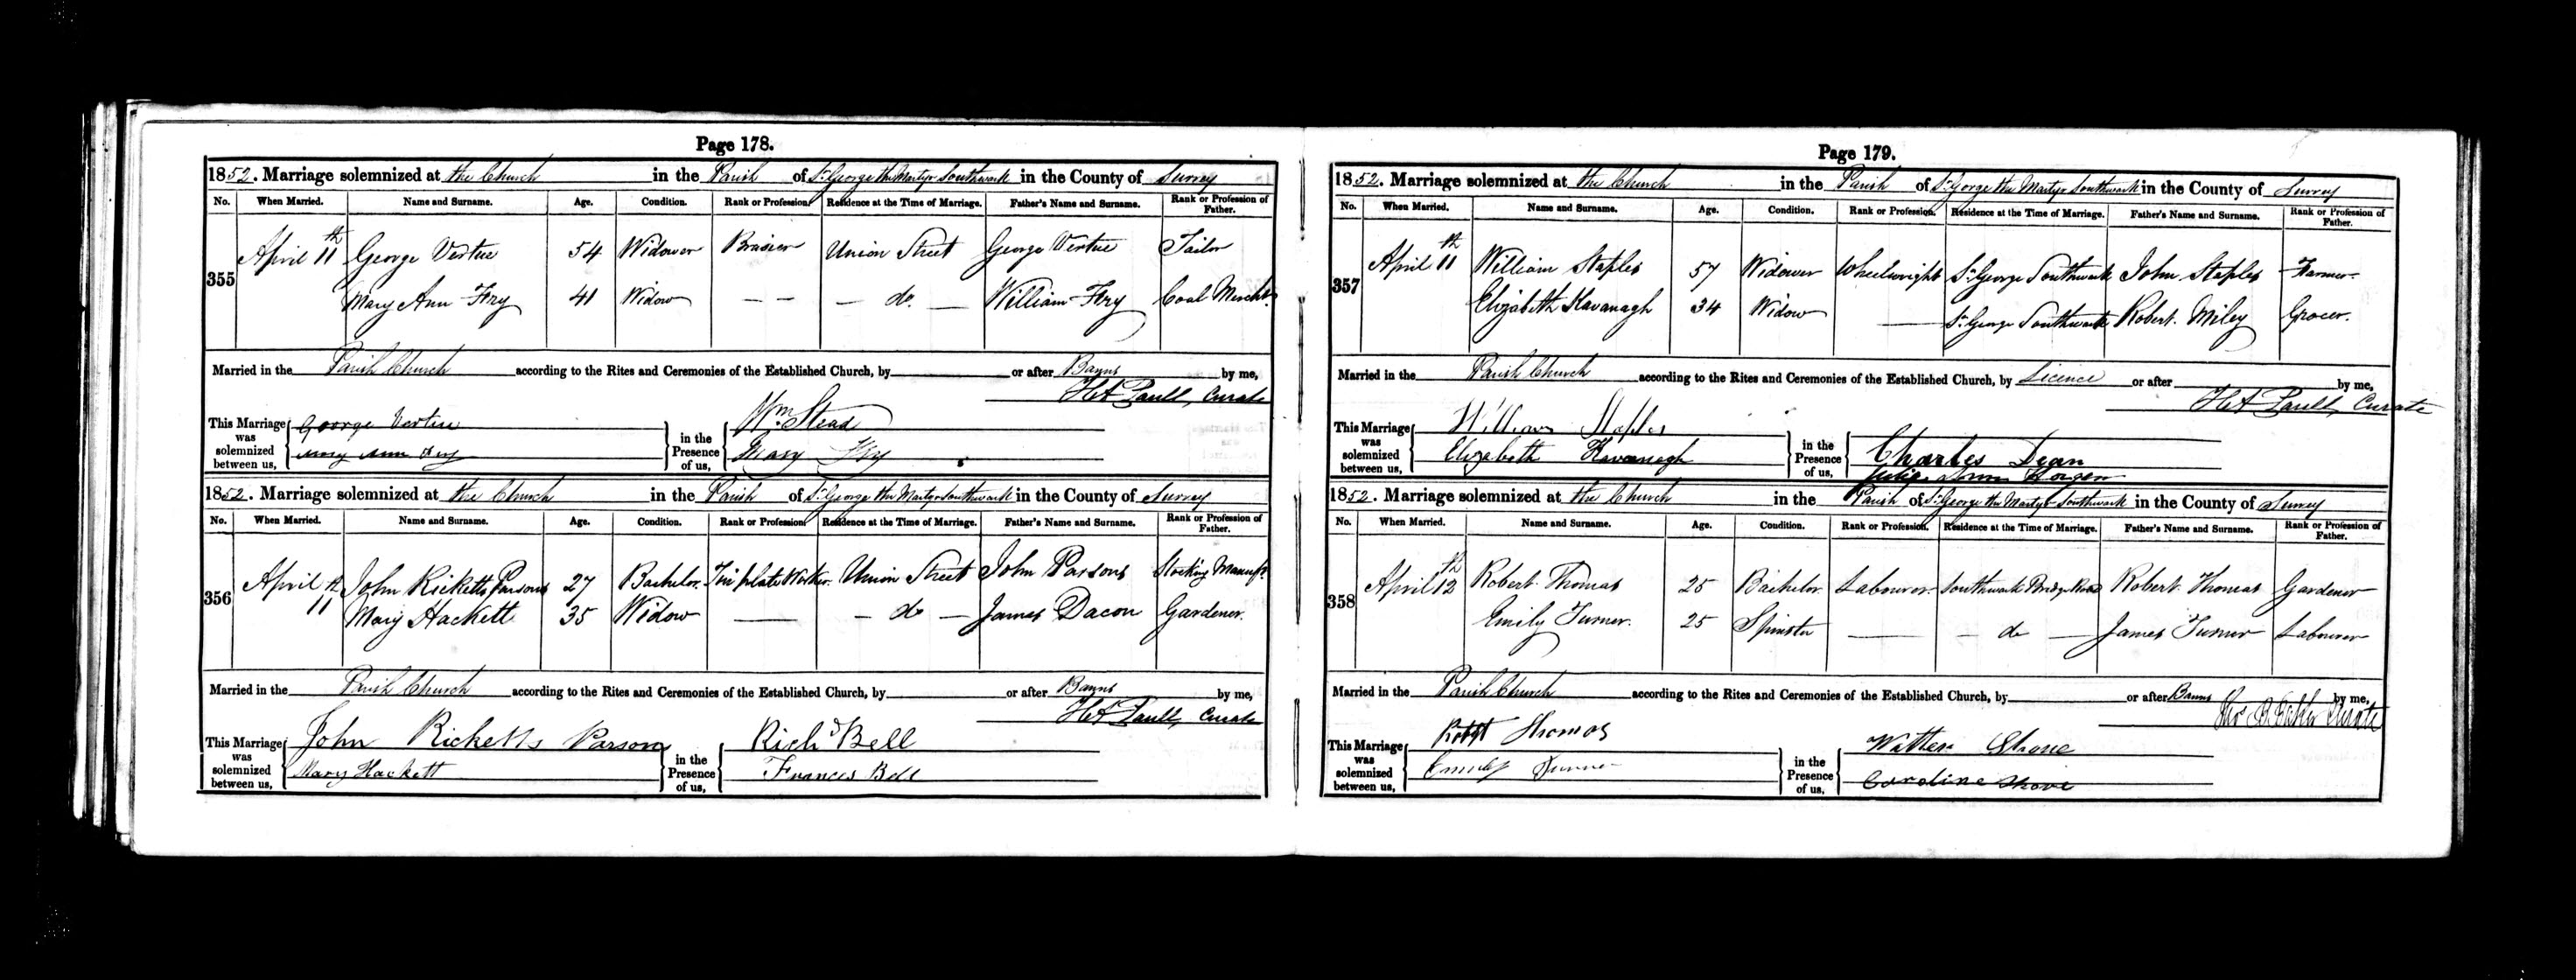 Page 178.
1852. Marriage solemnized at the Church in the Parish of St George the Martyr Southwark in the County of Surrey
No. When Married. Name and Surname. Age. Condition. Rank or Profession. Residence at the Time of Marriage. Father's Name and Surname. Rank or Profession of Father.
355 April 11th George Vertue 54 Widower Brasier Union Street George Vertue Tailor
Mary Ann Fry 41 Widow — — — do — William Fry Coal Mercht.
Married in the Parish Church according to the Rites and Ceremonies of the Established Church, by or after Banns by me,
H A Paull, Curate
This Marriage was solemnized between us, George Vertue in the Presence of us, Wm Stead
Mary Ann Fry Mary Fry
1852. Marriage solemnized at the Church in the Parish of St George the Martyr Southwark in the County of Surrey
No. When Married. Name and Surname. Age. Condition. Rank or Profession. Residence at the Time of Marriage. Father's Name and Surname. Rank or Profession of Father.
356 April 11th John Ricketts Parsons 27 Bachelor Tin plate Worker Union Street John Parsons Stocking Manufr.
Mary Hackett 35 Widow — — do — James Dacon Gardener.
Married in the Parish Church according to the Rites and Ceremonies of the Established Church, by or after Banns by me,
H A Paull, Curate
This Marriage was solemnized between us, John Ricketts Parsons in the Presence of us, Richd Bell
Mary Hackett Frances Bell
Page 179.
1852. Marriage solemnized at the Church in the Parish of St George the Martyr Southwark in the County of Surrey
No. When Married. Name and Surname. Age. Condition. Rank or Profession. Residence at the Time of Marriage. Father's Name and Surname. Rank or Profession of Father.
357 April 11th William Staples 57 Widower Wheelwright St George Southwark John Staples Farmer
Elizabeth Kavanagh 34 Widow — St George Southwark Robert Miley Grocer.
Married in the Parish Church according to the Rites and Ceremonies of the Established Church, by Licence or after by me,
H A Paull, Curate
This Marriage was solemnized between us, William Staples in the Presence of us, Charles Dean
Elizabeth Kavanagh
1852. Marriage solemnized at the Church in the Parish of St George the Martyr Southwark in the County of Surrey
No. When Married. Name and Surname. Age. Condition. Rank or Profession. Residence at the Time of Marriage. Father's Name and Surname. Rank or Profession of Father.
358 April 12th Robert Thomas 25 Bachelor Labourer Southwark Bridge Road Robert Thomas Gardener
Emily Turner. 25 Spinster — — do — James Turner Labourer
Married in the Parish Church according to the Rites and Ceremonies of the Established Church, by or after Banns by me,
Curate
This Marriage was solemnized between us, Robt Thomas in the Presence of us,
Emily Turner Caroline Shove